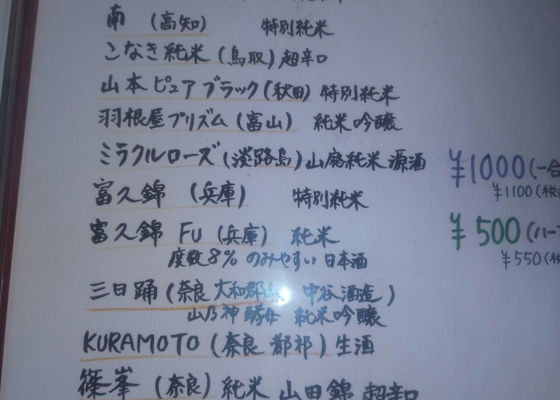 南 (高知) 特別純米
こなき純米 (鳥取) 超辛口
山本ピュアブラック (秋田) 特別純米
羽根屋プリズム (富山) 純米吟醸
ミラクルローズ (淡路島) 山廃純米 源酒
¥1000 (一合
¥1100 (税
富久錦 (兵庫) 特別純米
富久錦 FU (兵庫) 純米
度数8% のみやすい 日本酒
¥500 (ハー
¥550 (税
三日踊 (奈良 大和郡山 中谷酒造)
山乃神酵母 純米吟醸
KURAMOTO (奈良 都祁) 生酒
篠峯 (奈良) 純米 山田錦 超辛口